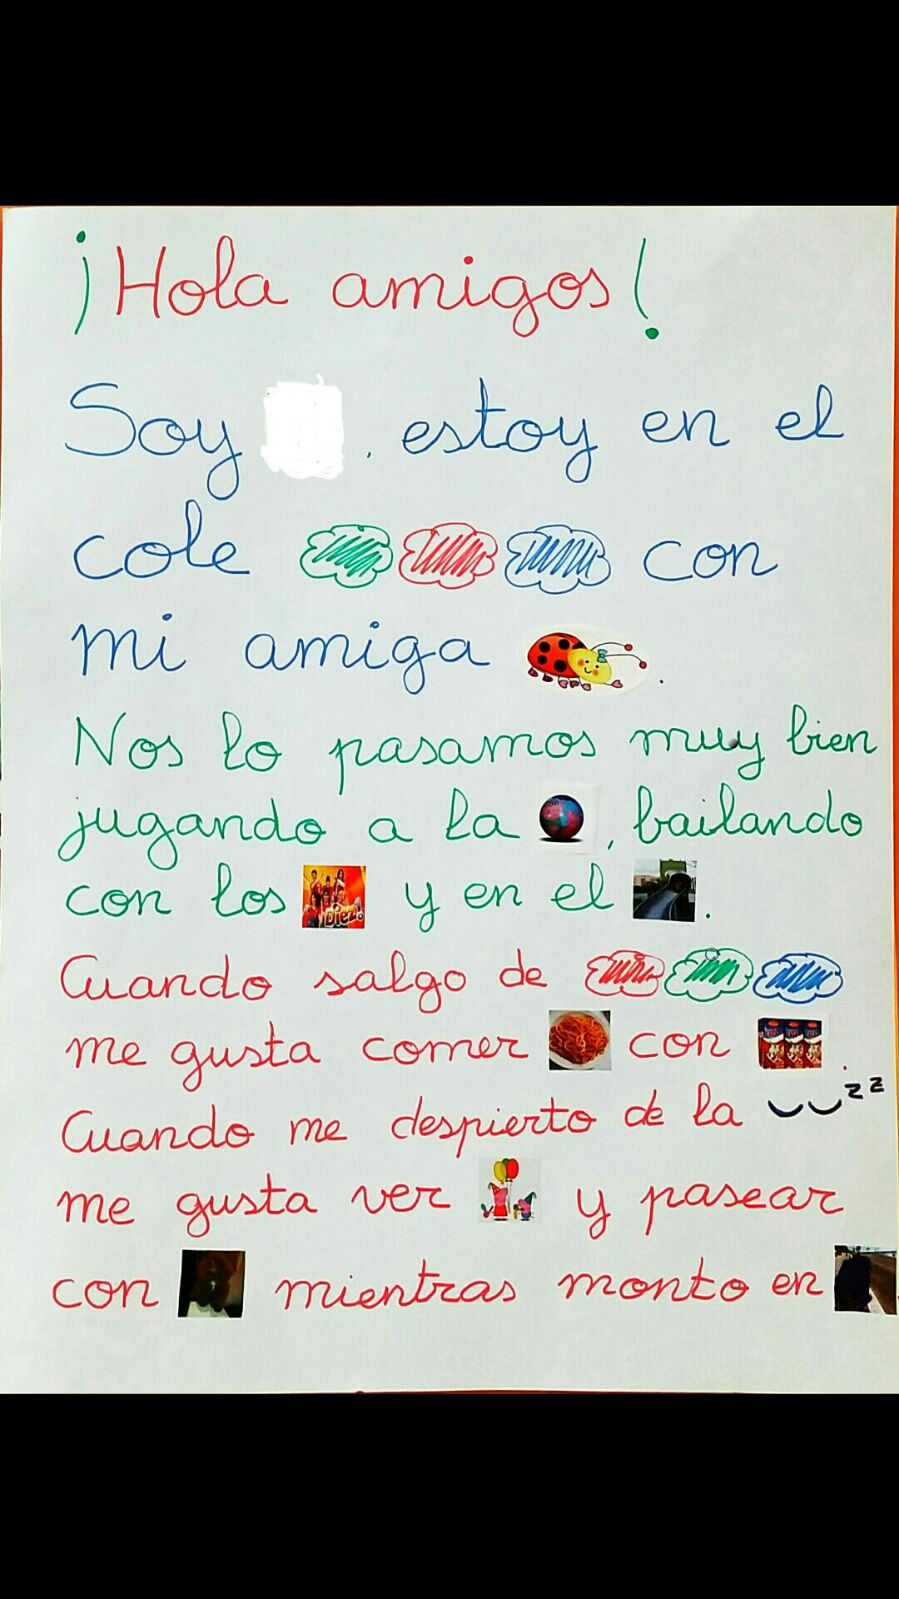 ¡Hola amigos!
Soy . estoy en el
cole con
mi amiga .
Nos lo pasamos muy bien
jugando a la , bailando
con los Diez! y en el .
Cuando salgo de
me gusta comer con .
Cuando me despierto de la zz
me gusta ver y pasear
con mientras monto en